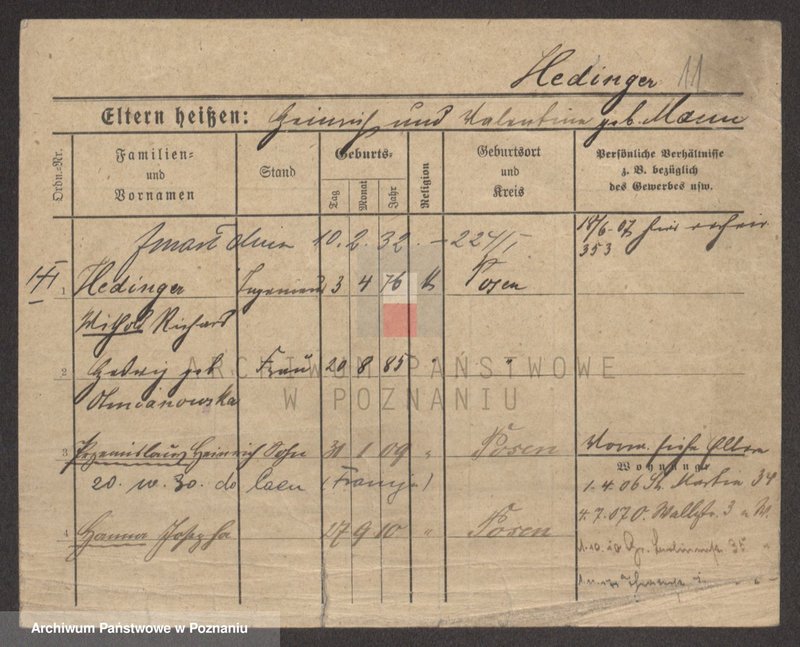 Hedinger 11
Eltern heißen: Heinrich und Valentine geb. Mann
Ordn.=Nr.
Familien= und Vornamen
Stand
Geburts=
Tag Monat Jahr
Religion
Geburtsort und Kreis
Persönliche Verhältnisse z. B. bezüglich des Gewerbes usw.
zmarł dnia 10. 2. 32. – 224/I
18/6.07
353
1 Hedinger Ingenieur 3 4 76 k Posen
Withold Richard
2 Hedwig geb. Frau 20 8 85 " "
Olmianowska
3 Przemislaus Heinrich Sohn 31 1 09 " Posen
20. w. 30. do Caen (Francja)
4 Hanna Josepha 27 9 10 " Posen
Vorm. siehe Eltern
Wohnung
1.4.06 St. Martin 34
4.7.07 O. Wallstr. 3
35
ARCHIWUM PAŃSTWOWE
W POZNANIU
Archiwum Państwowe w Poznaniu